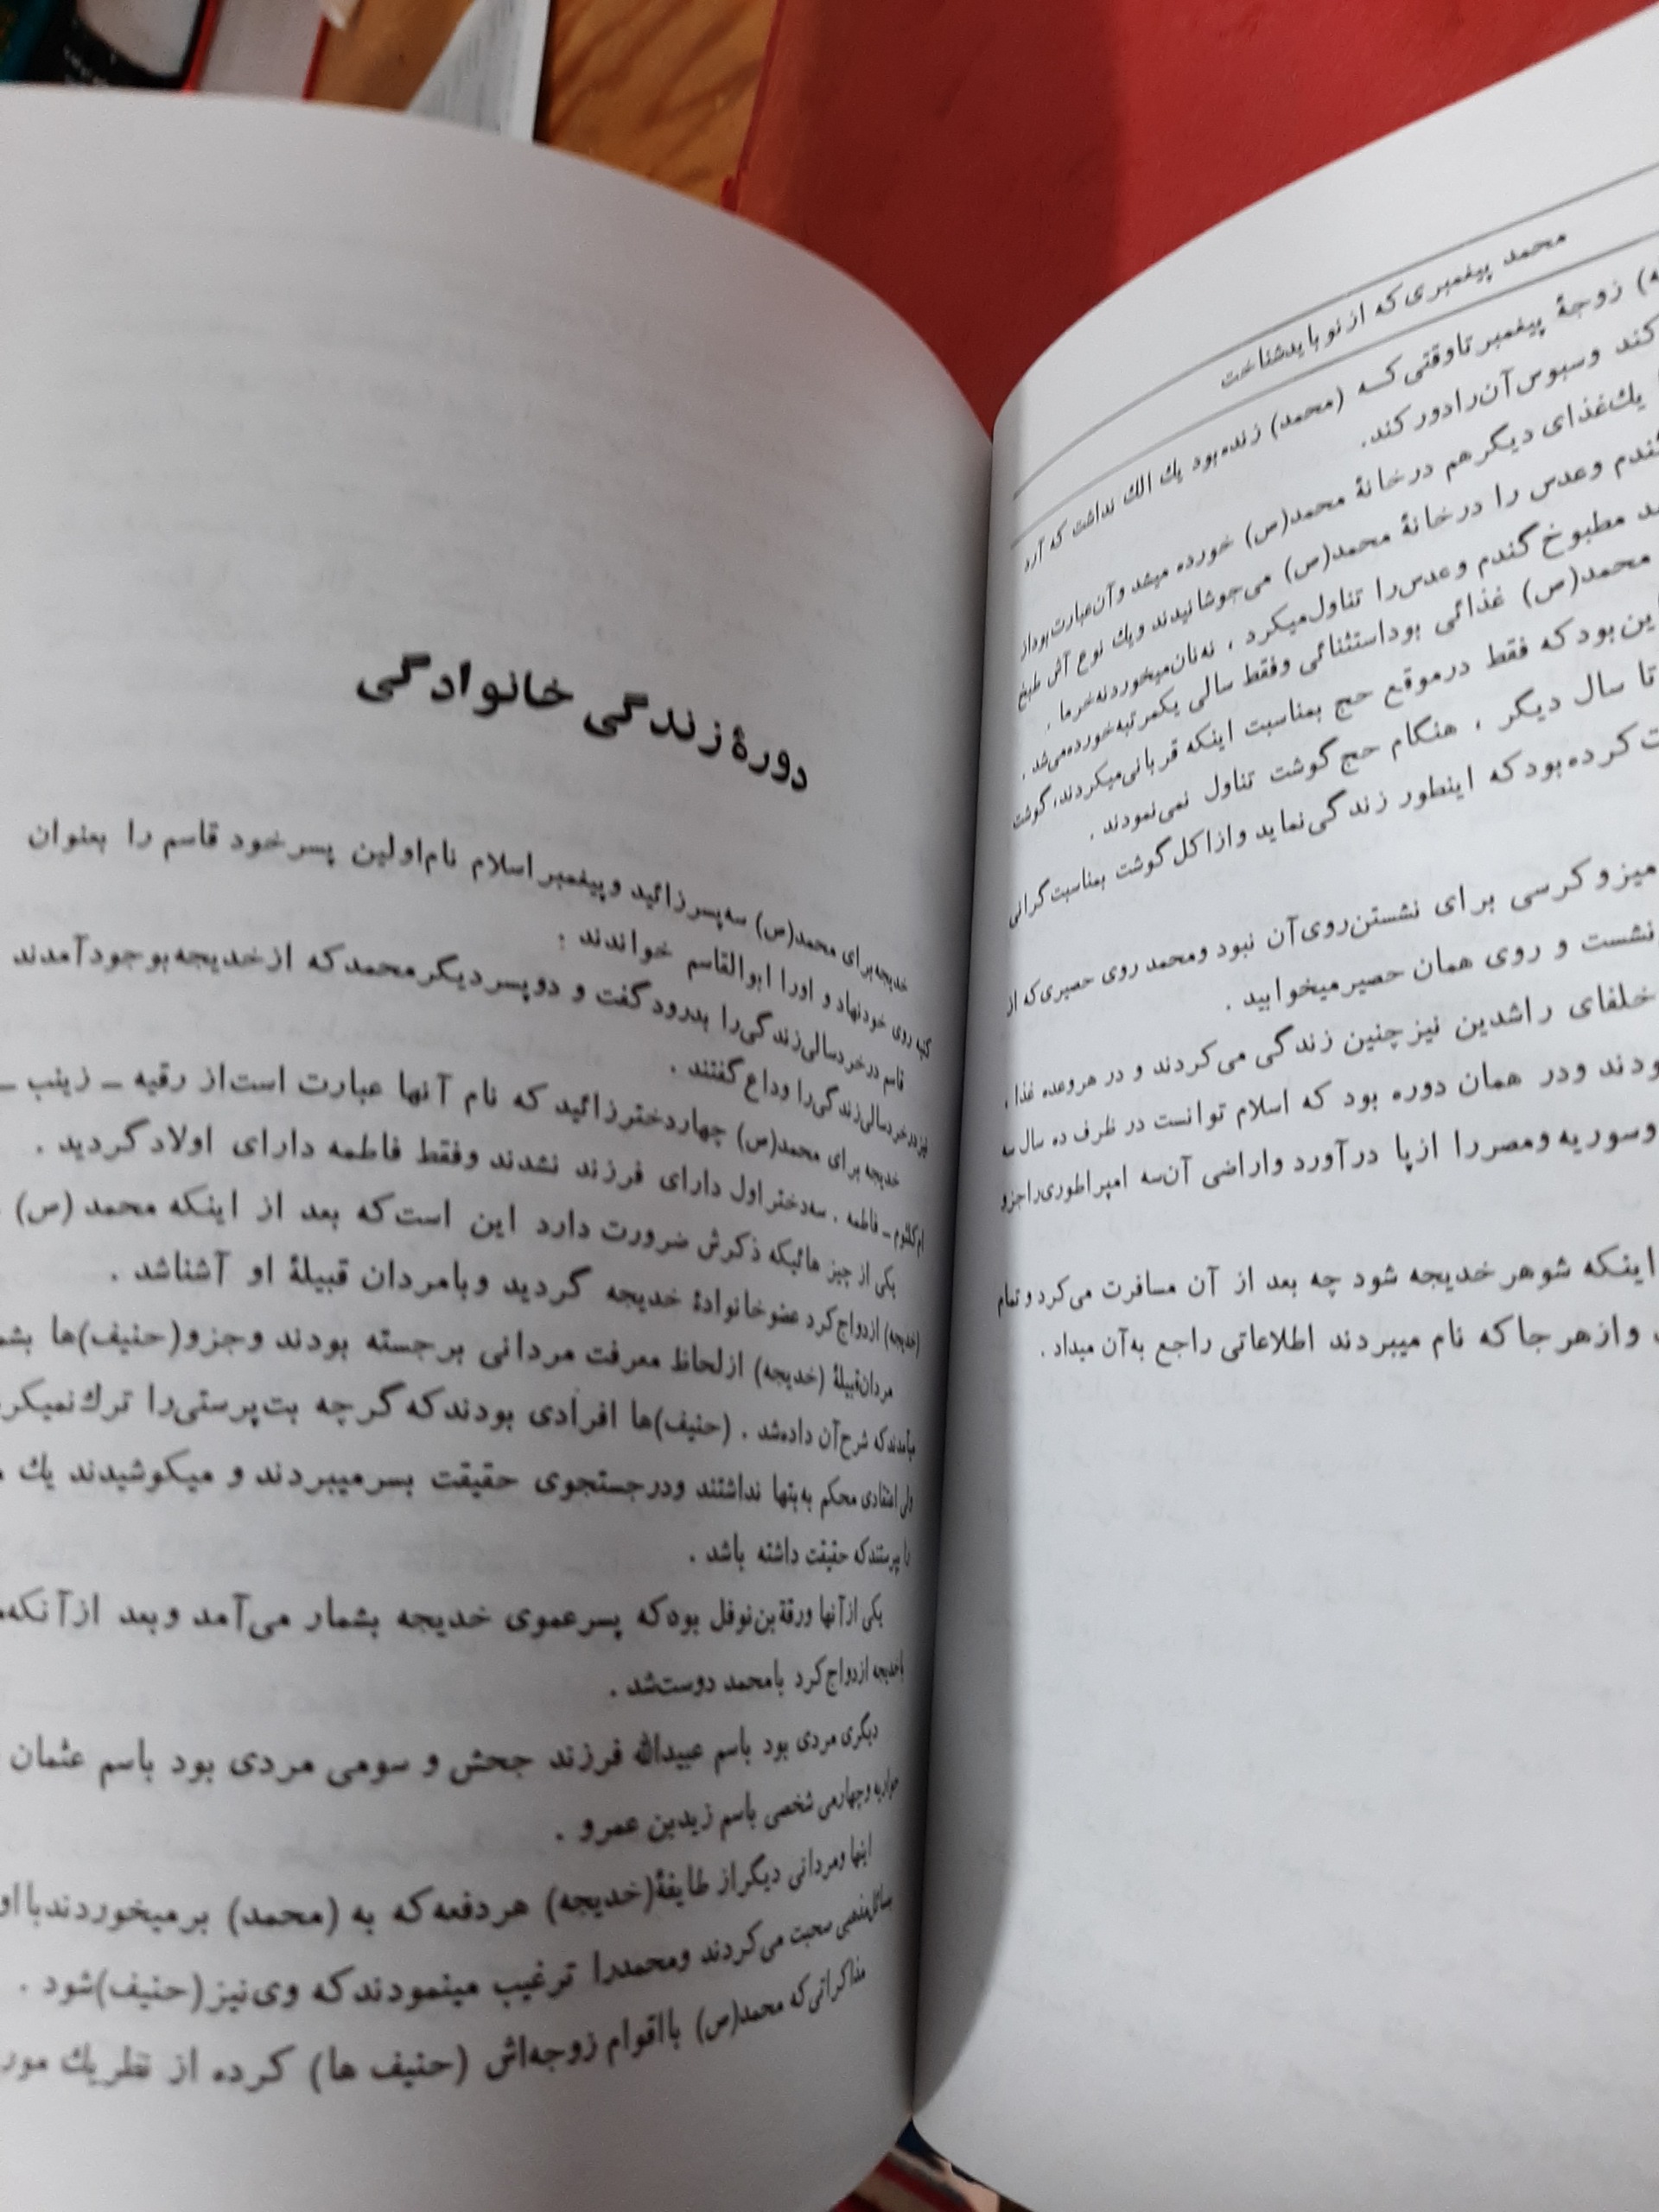 محمد پیغمبری که از نو باید شناخت
زوجهٔ پیغمبر تا وقتی که (محمد) زنده بود یك الك نداشت که آرد
کند و سبوس آن را دور کند.
یك غذای دیگر هم در خانهٔ محمد(ص) خورده میشد و آن عبارت بود از
گندم وعدس را در خانهٔ محمد(ص) می‌جوشانیدند ویك نوع آش طبخ
مطبوخ گندم وعدس را تناول میکرد ، نه نان میخورد نه خرما .
محمد(ص) غذائی بود استثنائی وفقط سالی یکمرتبه خورده می‌شد .
این بود که فقط در موقع حج بمناسبت اینکه قربانی میکردند، گوشت
تا سال دیگر ، هنگام حج گوشت تناول نمی‌نمودند .
کرده بود که اینطور زندگی نماید و از اکل گوشت بمناسبت گرانی
میز و کرسی برای نشستن روی آن نبود ومحمد روی حصیری که از
نشست و روی همان حصیر میخوابید .
خلفای راشدین نیز چنین زندگی می‌کردند و در هر وعده غذا ،
ودر همان دوره بود که اسلام توانست در ظرف ده سال سه
وسوریه ومصر را از پا در آورد واراضی آن سه امپراطوری را جزو
اینکه شوهر خدیجه شود چه بعد از آن مسافرت می‌کرد و تمام
و از هر جا که نام میبردند اطلاعاتی راجع به آن میداد .
دورهٔ زندگی خانوادگی
خدیجه برای محمد(ص) سه پسر زائید و پیغمبر اسلام نام اولین پسر خود قاسم را بعنوان
کنیه روی خود نهاد و اورا ابوالقاسم خواندند .
قاسم در خردسالی زندگی را بدرود گفت و دو پسر دیگر محمد که از خدیجه بوجود آمدند
نیز در خردسالی زندگی را وداع گفتند .
خدیجه برای محمد(ص) چهار دختر زائید که نام آنها عبارت است از رقیه ــ زینب ــ
ام کلثوم ــ فاطمه . سه دختر اول دارای فرزند نشدند وفقط فاطمه دارای اولاد گردید .
یکی از چیز هائیکه ذکرش ضرورت دارد این است که بعد از اینکه محمد (ص)
(خدیجه) ازدواج کرد عضو خانوادهٔ خدیجه گردید و بامردان قبیلهٔ او آشنا شد .
مردان قبیلهٔ (خدیجه) از لحاظ معرفت مردانی برجسته بودند وجزو (حنیف)ها
میآمدند که شرح آن داده شد . (حنیف)ها افرادی بودند که گر چه بت‌پرستی را
ولی اعتقادی محکم به بتها نداشتند ودر جستجوی حقیقت بسر میبردند و میکوشیدند یك
را پرستند که حقیقت داشته باشد .
یکی از آنها ورقة بن نوفل بود که پسر عموی خدیجه بشمار می‌آمد و بعد از آنکه
با خدیجه ازدواج کرد با محمد دوست شد .
دیگری مردی بود باسم عبیدالله فرزند جحش و سومی مردی بود باسم عثمان
وچهارمی شخصی باسم زیدبن عمرو .
اینها ومردانی دیگر از طایفهٔ (خدیجه) هر دفعه که به (محمد) برمیخوردند با او
مسائل مذهبی صحبت می‌کردند ومحمدرا ترغیب مینمودند که وی نیز (حنیف) شود .
مذاکراتی که محمد(ص) بااقوام زوجه‌اش (حنیف ها) کرده از نظر یك